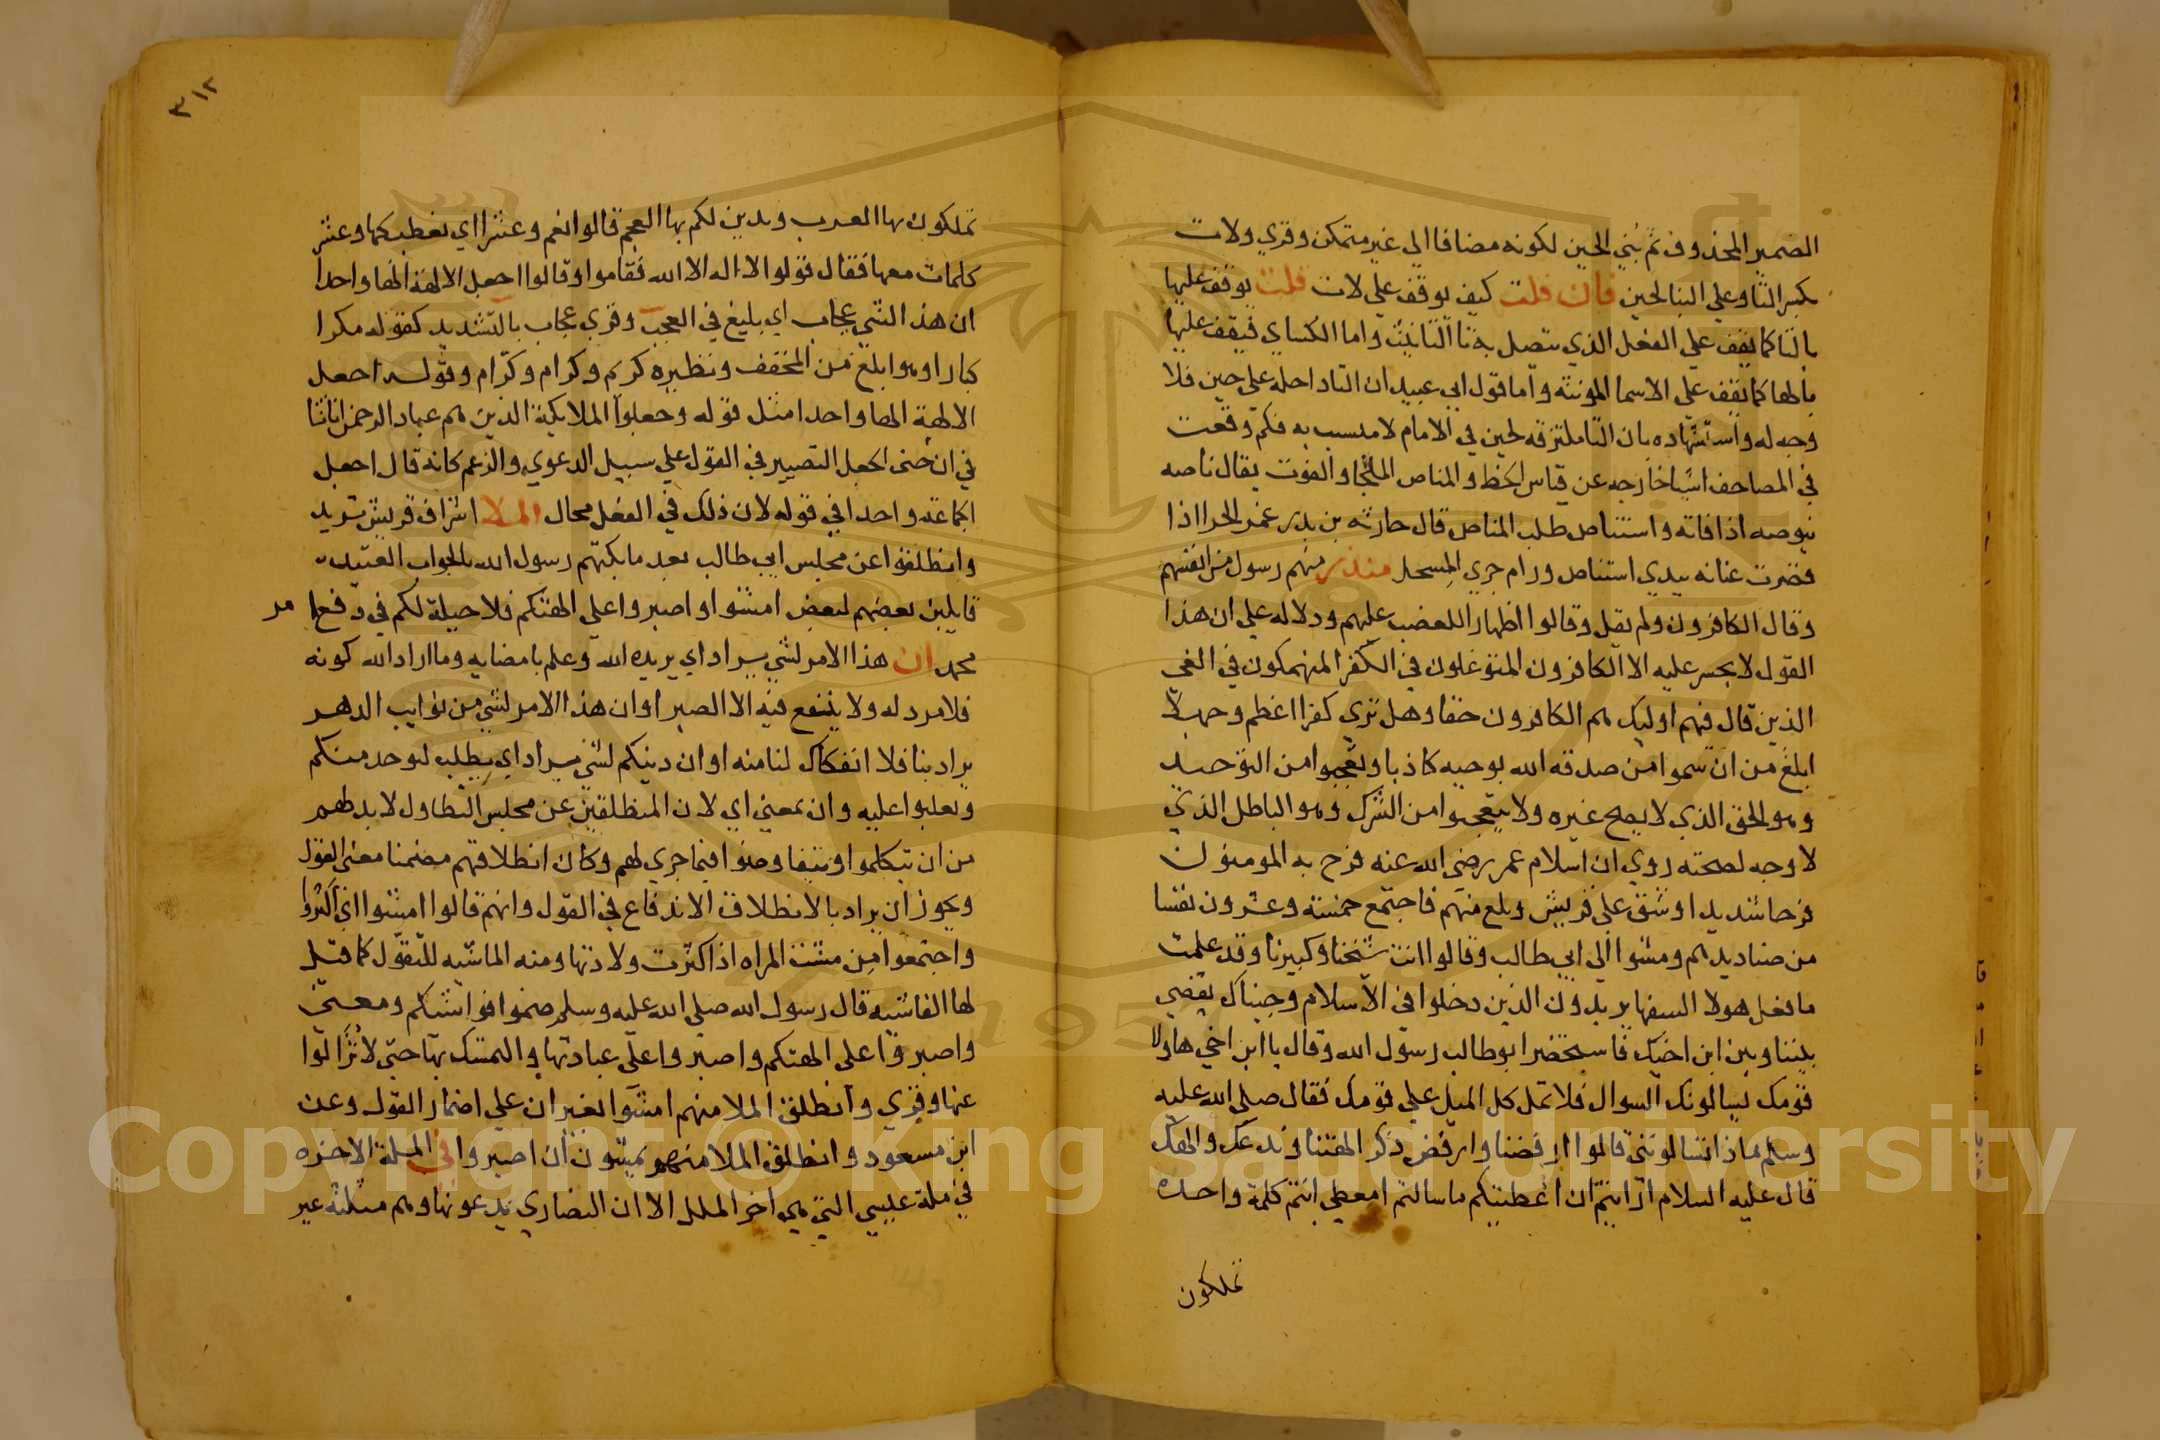 الضمير المحذوف ثم بُني الحين لكونه مضافا الي غير متمكن وقري ولات
بكسر التا وعلي البنا لحين فان قلت كيف يوقف علي لات قلت يوقف عليها
بالتا كما يقف علي الفعل الذي يتصل به تا التانيث واما الكساي فيقف عليها
بالها كما يقف علي الاسما المونثه واما قول ابي عبيد ان التا داخله علي حين فلا
وجه له واستشهاده بان التا ملتزقه لحين في الامام لا متسبب به فكم وقعت
في المصاحف اشيا خارجه عن قياس الخط والمناص الملجا والفوت يقال ناصه
ينوصه اذا فاته واستناص طلب المناص قال حارثه بن بدر غمر الجرا اذا
قصرت عنانه بيدي استناص ورام جري المسحل منذر منهم رسول من انفسهم
وقال الكافرون ولم يقل وقالوا اظهارا للغضب عليهم ودلاله علي ان هذا
القول لا يجسر عليه الا الكافرون المتوغلون في الكفر المنهمكون في الغي
الذين قال فيهم اوليك هم الكافرون حقا وهل تري كفرا اعظم وجهلا
ابلغ من ان سموا من صدقه الله بوحيه كاذبا وتعجبوا من التوحيد
وهو الحق الذي لا يصح غيره ولا يتعجبوا من الشرك وهو الباطل الذي
لا وجه لصحته روي ان اسلام عمر رضي الله عنه فرح به المومنون
فرحا شديدا وشق علي قريش وبلغ منهم فاجتمع خمسة وعشرون نفسا
من صناديدهم ومشوا الي ابي طالب وقالوا انت شيخنا وكبيرنا وقد علمت
ما فعل هولا السفها يريدون الذين دخلوا في الاسلام وجيناك لتقضي
بيننا وبين ابن اخيك فاستحضر ابو طالب رسول الله وقال يا ابن اخي هاولا
قومك يسالونك السوال فلا تمل كل الميل علي قومك فقال صلي الله عليه
وسلم ماذا تسالونني قالوا ارفضنا وارفض ذكر الهتنا وندعك والهك
قال عليه السلام ارايتم ان اعطيتكم ما سالتم امعطي انتم كلمة واحده
تملكون
٣١٢
تملكون بها العرب وتدين لكم بها العجم قالوا نعم وعشرا اي نعطيكها وعشر
كلمات معها فقال قولوا لا اله الا الله فقاموا وقالوا اجعل الالهة الها واحدا
ان هذا لشي عجاب اي بليغ في العجب وقري عجاب بالتشديد كقوله مكرا
كبارا وهو ابلغ من المخفف ونظيره كريم وكرام وكرّام وقوله اجعل
الالهة الها واحدا مثل قوله وجعلوا الملايكة الذين هم عباد الرحمن اناثا
في ان معني الجعل التصيير في القول علي سبيل الدعوي والزعم كانه قال اجعل
الجماعة واحدا في قوله لان ذلك في الفعل محال الملا اشراف قريش يريد
وانطلقوا عن مجلس ابي طالب بعد ما بكتهم رسول الله بالجواب العتيد
قايلين بعضهم لبعض امشوا واصبروا علي الهتكم فلا حيلة لكم في دفع امر
محمد ان هذا الامر لشي يراد اي يريده الله وعلم بامضايه وما اراد الله كونه
فلا مرد له ولا ينفع فيه الا الصبر او ان هذا الامر لشي من نوايب الدهر
يراد بنا فلا انفكاك لنا منه او ان دينكم لشي يراد اي يطلب ليوخد منكم
وتعلبوا عليه وان بمعني اي لان المنطلقين عن مجلس التطاول لا بد لهم
من ان يتكلموا ويتفاوضوا فيما جري لهم وكان انطلاقهم مضمنا معني القول
ويجوز ان يراد بالانطلاق الاندفاع في القول وانهم قالوا امشوا اي اكثروا
واجتمعوا من مشت المراه اذا كثرت ولادتها ومنه الماشيه للتفول كما قيل
لها الفاشيه قال رسول الله صلي الله عليه وسلم ضموا فواشيكم ومعني
واصبروا علي الهتكم واصبروا علي عبادتها والتمسك بها حتي لا تزالوا
عنها وقري وانطلق الملا منهم امشوا بغير ان علي اضمار القول وعن
ابن مسعود وانطلق الملا منهم يمشون ان اصبروا في الملة الاخره
في ملة عيسي التي هي اخر الملل لان النصاري يدعونها وهم مثلثة غير
Copyright © King Saud University
1957